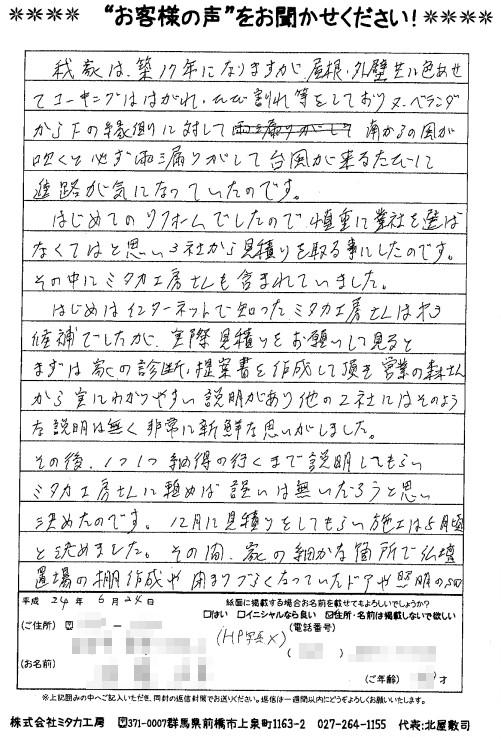 **** “お客様の声”をお聞かせください! ****
我家は、築17年になりますが、屋根・外壁共に色あせ
てコーキングははがれ、ひび割れ等をしており又、ベランダ
から下の縁側に対して 南からの風が
吹くと必ず雨漏りがして台風が来るたびに
進路が気になっていたのです。
はじめてのリフォームでしたので慎重に業社を選ば
なくてはと思い3社から見積りを取る事にしたのです。
その中にミタカ工房さんも含まれていました。
はじめはインターネットで知ったミタカ工房さんは
候補でしたが、実際見積りをお願いして見ると
まずは家の診断・提案書を作成して頂き営業の森さん
から実にわかりやすい説明があり他の2社にはそのよう
な説明は無く非常に新鮮な思いがしました。
その後、1つ1つ納得の行くまで説明してもらい
ミタカ工房さんに頼めば間違いは無いだろうと思い
決めたのです。12月に見積りをしてもらい施工は5月頃
と決めました。その間、家の細かな箇所で仏壇
置場の棚作成や閉まりづらくなっていたドアや照明の
平成 24年 6月 24日
紙面に掲載する場合お名前を載せてもよろしいでしょうか?
□はい □イニシャルなら良い ☑住所・名前は掲載しないで欲しい
(ご住所) 〒
(電話番号)
(HP写真×)
(お名前)
(ご年齢) 才
※上記囲みの中へご記入いただき、同封の返信封筒でお送りください。返信は一週間以内にどうぞよろしくお願いいたします。
株式会社ミタカ工房 〒371-0007群馬県前橋市上泉町1163-2 027-264-1155 代表:北屋敷司